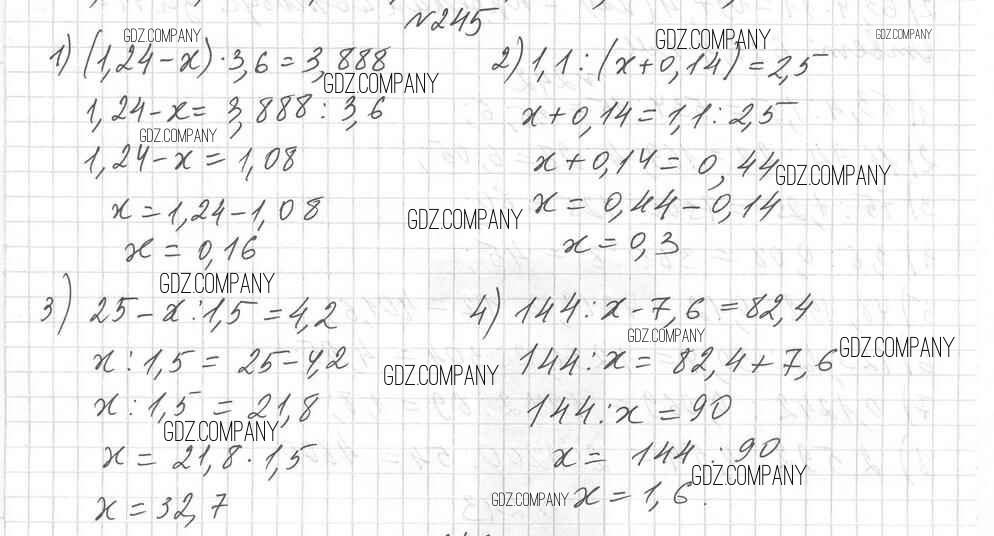 №245
1) (1,24-x)·3,6=3,888
1,24-x=3,888:3,6
1,24-x=1,08
x=1,24-1,08
x=0,16
2) 1,1:(x+0,14)=2,5
x+0,14=1,1:2,5
x+0,14=0,44
x=0,44-0,14
x=0,3
3) 25-x:1,5=4,2
x:1,5=25-4,2
x:1,5=21,8
x=21,8·1,5
x=32,7
4) 144:x-7,6=82,4
144:x=82,4+7,6
144:x=90
x=144:90
x=1,6.
GDZ.COMPANY
GDZ.COMPANY
GDZ.COMPANY
GDZ.COMPANY
GDZ.COMPANY
GDZ.COMPANY
GDZ.COMPANY
GDZ.COMPANY
GDZ.COMPANY
GDZ.COMPANY
GDZ.COMPANY
GDZ.COMPANY
GDZ.COMPANY
GDZ.COMPANY